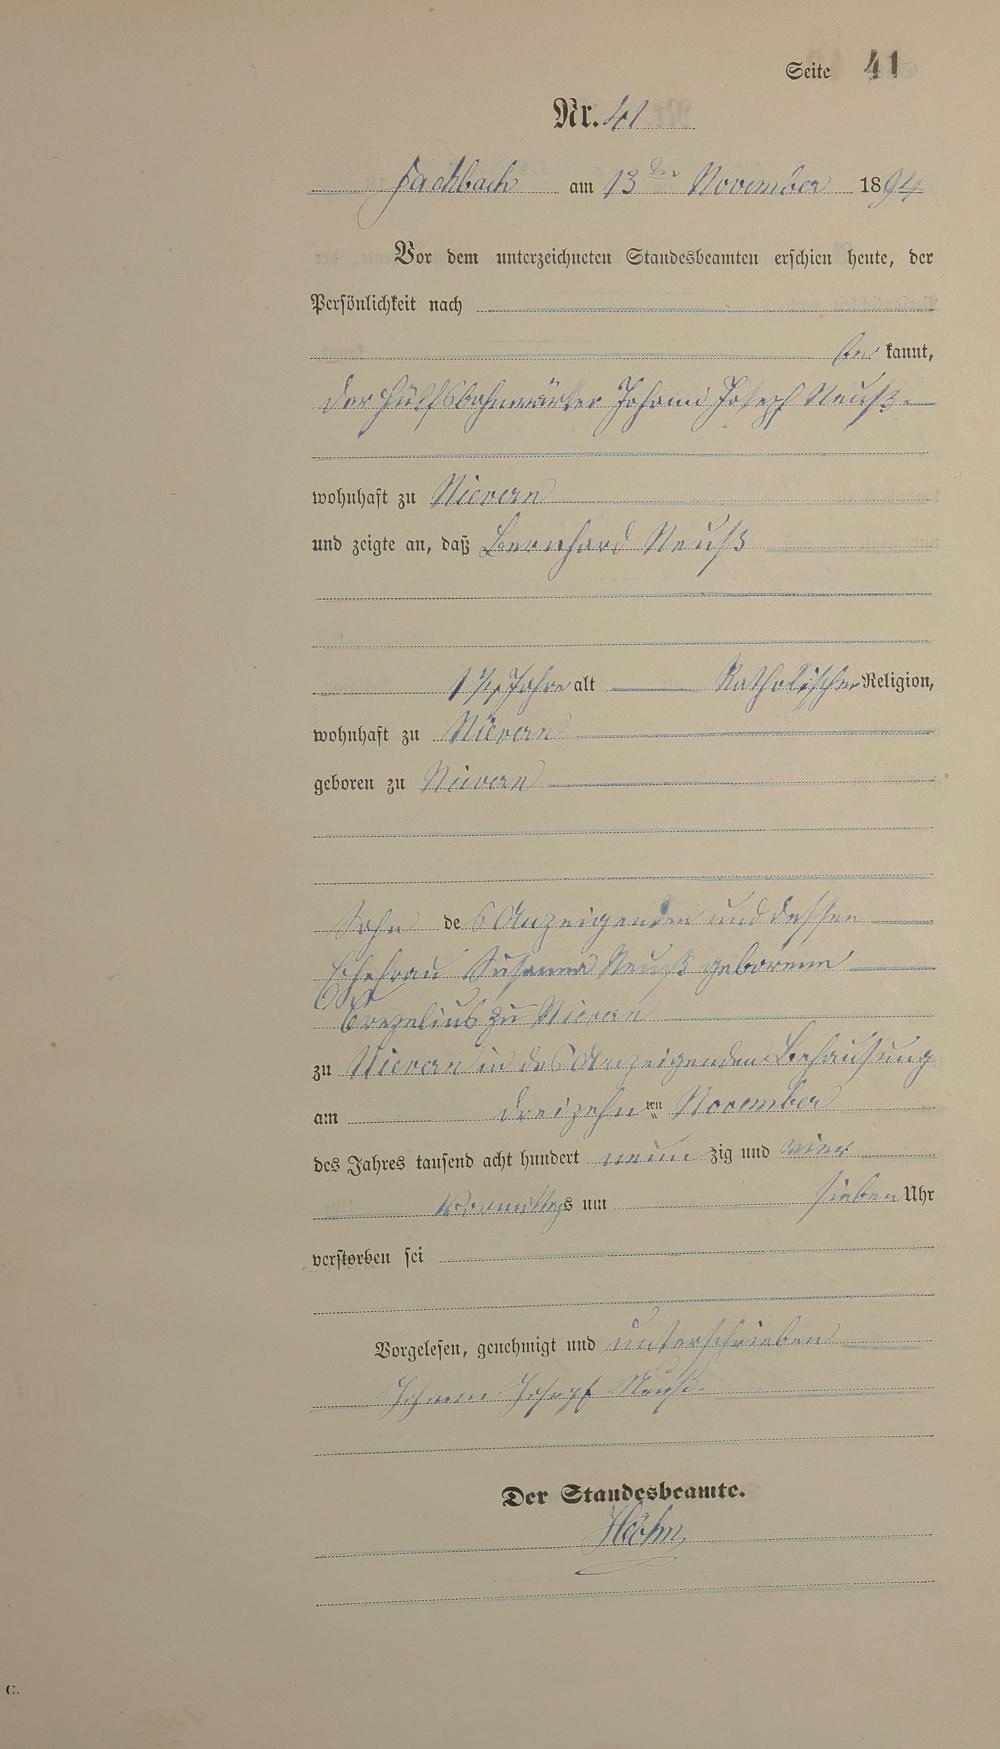 Seite 41
Nr. 41
Fachbach am 13ten November 1894
Vor dem unterzeichneten Standesbeamten erschien heute, der
Persönlichkeit nach
be kannt,
der Hülfsbahnwärter Johann Joseph Neuß
wohnhaft zu Nievern
und zeigte an, daß Bernhard Neuß
Jahre alt Katholischer Religion,
wohnhaft zu Nievern
geboren zu Nievern
Sohn des Anzeigenden und dessen
Ehefrau Susanna Neuß geborenen
zu Nievern
zu Nievern in des Anzeigenden Behausung
am dreizehnten November
des Jahres tausend acht hundert neunzig und vier
Vormittags um sieben Uhr
verstorben sei
Vorgelesen, genehmigt und unterschrieben
Johann Joseph Neuß.
Der Standesbeamte.
Höhn
C.